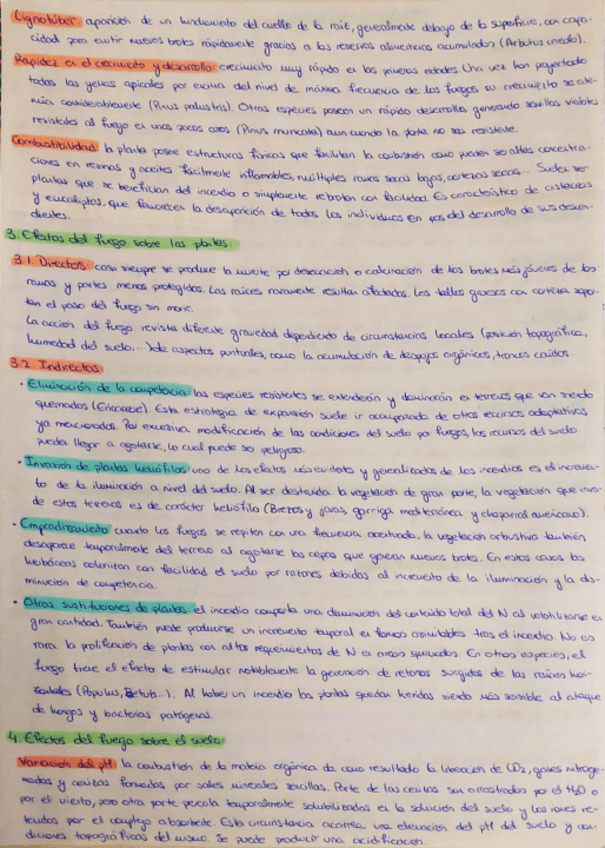 Lignotúber: aparición de un hundimiento del cuello de la raíz, generalmente debajo de la superficie, con capa-
cidad para emitir nuevos brotes rápidamente gracias a las reservas alimenticias acumuladas (Arbutus unedo).
Rapidez en el crecimiento y desarrollo: crecimiento muy rápido en las primeras edades. Una vez han proyectado
todas las yemas apicales por encima del nivel de máxima frecuencia de los fuegos su crecimiento se ate-
núa considerablemente (Pinus palustris). Otras especies poseen un rápido desarrollo, generando semillas viables
resistentes al fuego en unos pocos años (Pinus muricata) aun cuando la planta no sea resistente.
Combustibilidad: la planta posee estructuras físicas que facilitan la combustión como pueden ser altas concentra-
ciones en resinas y aceites fácilmente inflamables, múltiples ramas secas bajas, cortezas secas... Suelen ser
plantas que se benefician del incendio o simplemente rebrotan con facilidad. Es característico de cistáceas
y eucaliptos, que favorecen la desaparición de todos los individuos en pos del desarrollo de sus descen-
dientes.
3. Efectos del fuego sobre las plantas:
3.1. Directos: casi siempre se produce la muerte por desecación o calcinación de los brotes más jóvenes de las
ramas y partes menos protegidas. Las raíces raramente resultan afectadas. Los tallos gruesos con corteza sopor-
tan el paso del fuego sin morir.
La acción del fuego revista diferente gravedad dependiendo de circunstancias locales (posición topográfica,
humedad del suelo,...) de aspectos puntuales, como la acumulación de despojos orgánicos, troncos caídos...
3.2. Indirectos:
· Eliminación de la competencia: las especies resistentes se extenderán y dominarán en terrenos que van siendo
quemados (Ericaceae). Esta estrategia de expansión suele ir acompañada de otros recursos adaptativos
ya mencionados. Por excesiva modificación de las condiciones del suelo por fuegos, los recursos del suelo
pueden llegar a agotarse, lo cual puede ser peligroso.
· Invasión de plantas heliófilas: uno de los efectos más evidentes y generalizados de los incendios es el incremen-
to de la iluminación a nivel del suelo. Al ser destruida la vegetación de gran porte, la vegetación que inva-
de estos terrenos es de carácter heliófila (Brezos y jaras, garriga mediterránea y chaparral americano).
· Empradizamiento: cuando los fuegos se repiten con una frecuencia acentuada, la vegetación arbustiva también
desaparece temporalmente del terreno al agotarse las cepas que generan nuevos brotes. En estos casos las
herbáceas colonizan con facilidad el suelo por razones debidas al incremento de la iluminación y la dis-
minución de competencia.
· Otras sustituciones de plantas: el incendio comporta una disminución del contenido total del N al volatilizarse en
gran cantidad. También puede producirse un incremento temporal en formas asimilables tras el incendio. No es
rara la proliferación de plantas con altos requerimientos de N en áreas quemadas. En otras especies, el
fuego tiene el efecto de estimular notablemente la generación de retoños surgidos de las raíces hori-
zontales (Populus, Betula...). Al haber un incendio las plantas quedan heridas siendo más sensible al ataque
de hongos y bacterias patógenas.
4. Efectos del fuego sobre el suelo:
Variación del pH: la combustión de la materia orgánica da como resultado la liberación de CO2, gases nitroge-
nados y cenizas formadas por sales minerales sencillas. Parte de las cenizas son arrastradas por el H2O o
por el viento, pero otra parte percola temporalmente solubilizadas en la solución del suelo y los iones re-
tenidos por el complejo absorbente. Esta circunstancia acarrea una elevación del pH del suelo y con-
diciones topográficas del mismo. Se puede producir una acidificación.